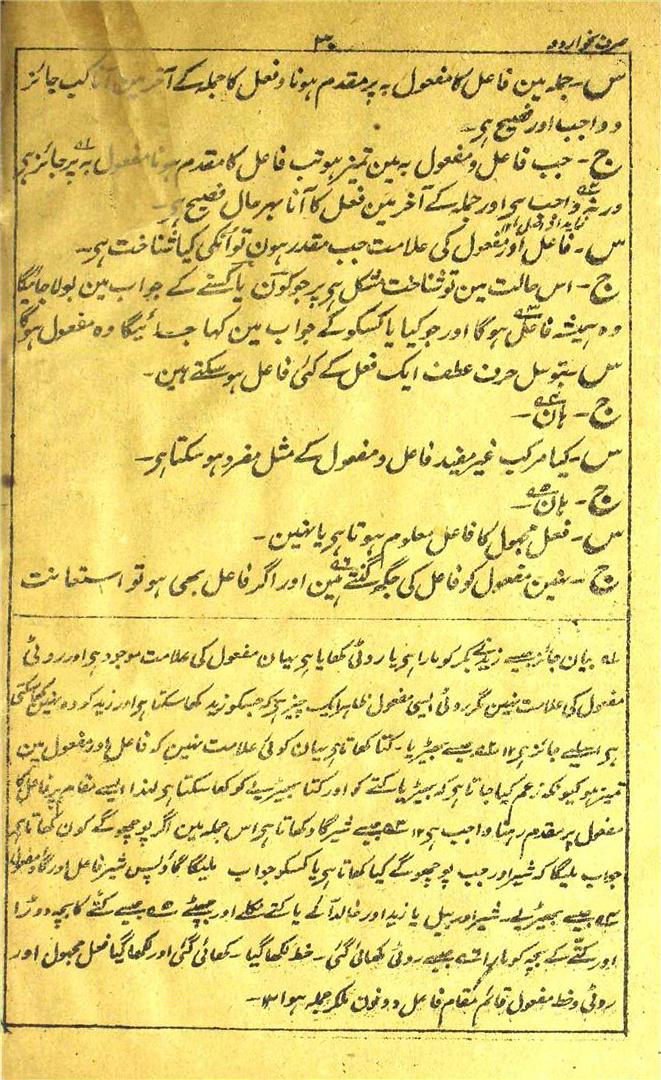 صرف نحو اردو
۳۰
س۔ جملہ مین فاعل کا مفعول بہ پر مقدم ہونا و فعل کا جملہ کے آخر مین آنا کب جائز
و واجب اور فصیح ہی۔
ج۔ جب فاعل و مفعول بہ مین تمیز ہو تب فاعل کا مقدم ہونا مفعول بہ پر جائز ہی
ورنہ واجب ہی اور جملہ کے آخر مین فعل کا آنا بہر حال فصیح ہی۔
س۔ فاعل اور مفعول کی علامت جب مقدر ہون تو انکی کیا شناخت ہی۔
ج۔ اس حالت مین تو شناخت مشکل ہی پر جو کون یا کسنے کے جواب مین بولا جائیگا
وہ ہمیشہ فاعل ہوگا اور جو کیا یا کسکو کے جواب مین کہا جائیگا وہ مفعول ہوگا
س۔ بتوسل حرف عطف ایک فعل کے کئی فاعل ہو سکتے ہین۔
ج۔ ہان۔
س۔ کیا مرکب غیر مفید فاعل و مفعول کے مثل مفرد ہو سکتا ہی۔
ج۔ ہان۔
س۔ فعل مجہول کا فاعل معلوم ہوتا ہی یا نہین۔
ج۔ نہین مفعول کو فاعل کی جگہ گنتے ہین اور اگر فاعل بھی ہو تو استعانت
۱؎ بیان جائز جیسے زید نے بکر کو مارا ہی یا روٹی کھایا ہی یہان مفعول کی علامت موجود ہی اور روٹی
مفعول کی علامت نہین مگر روٹی ایسی مفعول ظاہر ایک چیز ہی کہ جسکو زید کھا سکتا ہی اور زید کو وہ نہین کھا سکتی
ہی اسلیے جائز ہی ۱۲ ۲؎ جیسے بھیڑیا۔ کتا کھاتا ہی یہان کوئی علامت نہین کہ فاعل اور مفعول مین
تمیز ہو کیونکہ زعم کیا جاتا ہی کہ بھیڑیا کتے کو اور کتا بھیڑیے کو کھا سکتا ہی لہذا ایسے مقام پر فاعل کا
مفعول پر مقدم رہنا واجب ہی ۱۲ ۳؎ جیسے شیر گاو کھاتا ہی اس جملہ مین اگر پوچھو گے کون کھاتا ہی
جواب ملیگا کہ شیر اور جب پوچھو گے کیا کھاتا ہی یا کسکو جواب ملیگا گاو پس شیر فاعل اور گاو مفعول
۴؎ جیسے بھیڑیے۔ شیر اور بیل یا زید اور خالد آئے یا کتے نکلے اور جھپٹے ۵؎ جیسے کتے کا بچہ دوڑا
اور کتے کے بچہ کو مارا ۶؎ جیسے روٹی کھائی گئی۔ خط لکھا گیا۔ کھائی گئی اور لکھا گیا فعل مجہول اور
روٹی و خط مفعول قائم مقام فاعل دونون ملکر جملہ ہوا ۱۲۔